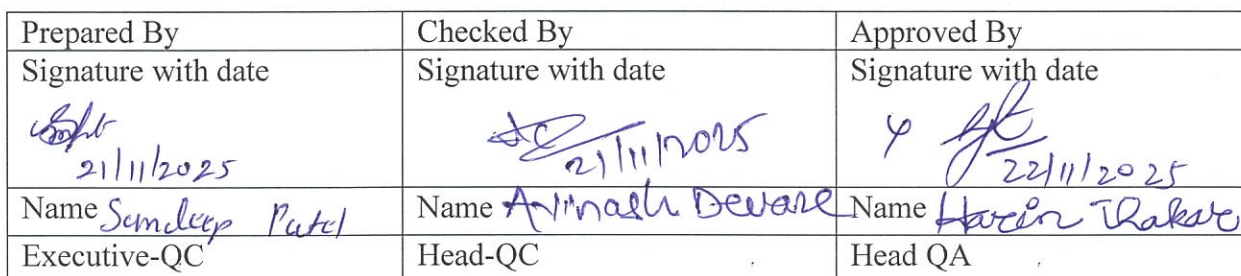 Prepared By Checked By Approved By
Signature with date Signature with date Signature with date
21/11/2025 21/11/2025 22/11/2025
Name Sandeep Patel Name Avinash Deware Name Harin Thakar
Executive-QC Head-QC Head QA